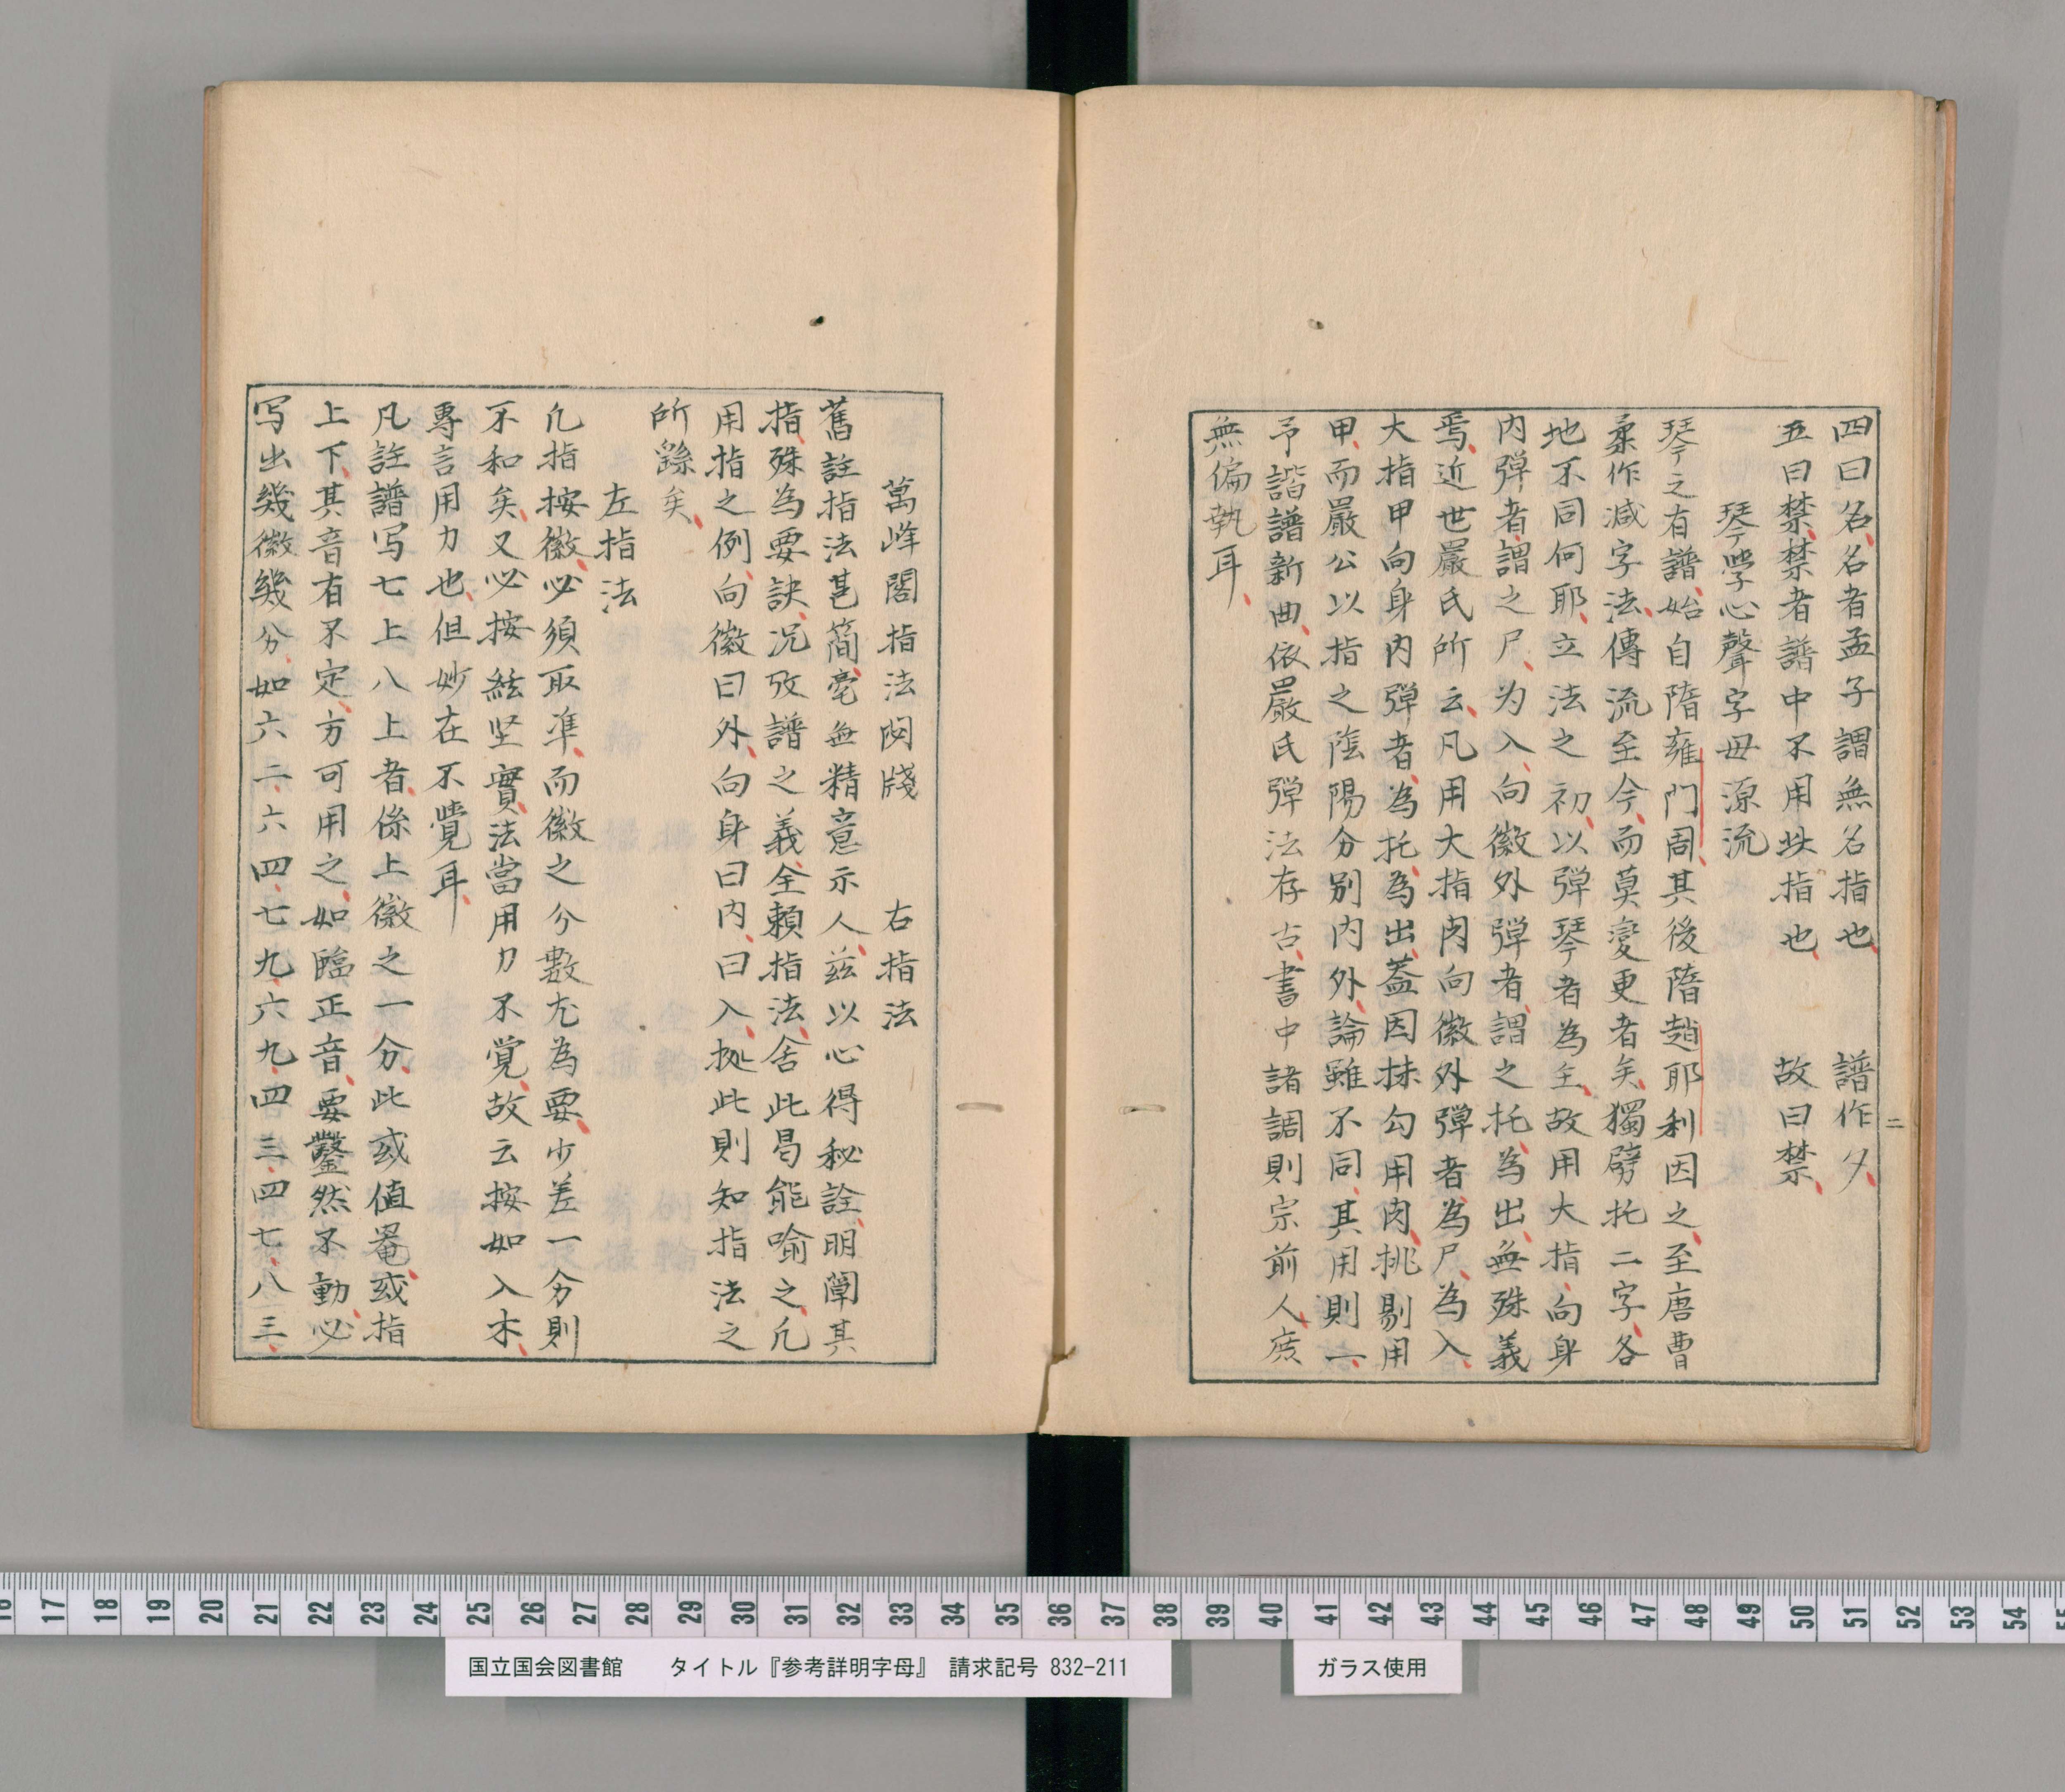 四曰名名者孟子謂無名指也　譜作夕
五曰禁禁者譜中不用此指也　故曰禁
琴學心聲字母源流
琴之有譜始自隋雍门周其後隋趙耶利因之至唐曹
柔作減字法傳流至今而莫變更者矣獨劈托二字各
地不同何耶立法之初以弾琴者為主故用大指向身
内弾者謂之尸为入向徽外弾者謂之托為出無殊義
焉近世嚴氏所云凡用大指肉向徽外弾者為尸為入
大指甲向身内弾者為托為出葢因抹勾用肉挑剔用
甲而嚴公以指之陰陽分别内外論雖不同其用則一
予諧譜新曲依嚴氏弾法存古書中諸調則宗前人庻
無偏執耳
二
萬峰閣指法閟牋　右指法
舊註指法甚簡毫無精意示人兹以心得秘詮明闡其
指殊為要訣况攷譜之義全頼指法舍此曷能喻之凢
用指之例向徽曰外向身曰内曰入執此則知指法之
所繇矣
左指法
凢指按徽必須取準而徽之分數尤為要少差一分則
不和矣又必按絃坚實法當用力不覚故云按如入木
專言用力也但妙在不覺耳
凡註譜写七上八上者係上徽之一分此或值罨或指
上下其音有不定方可用之如臨正音要鑿然不動必
写出幾徽幾分如六二六四七九六九四三四七八三
一
一
16 17 18 19 20 21 22 23 24 25 26 27 28 29 30 31 32 33 34 35 36 37 38 39 40 41 42 43 44 45 46 47 48 49 50 51 52 53 54 55
国立国会図書館　タイトル『参考詳明字母』　請求記号 832-211
ガラス使用